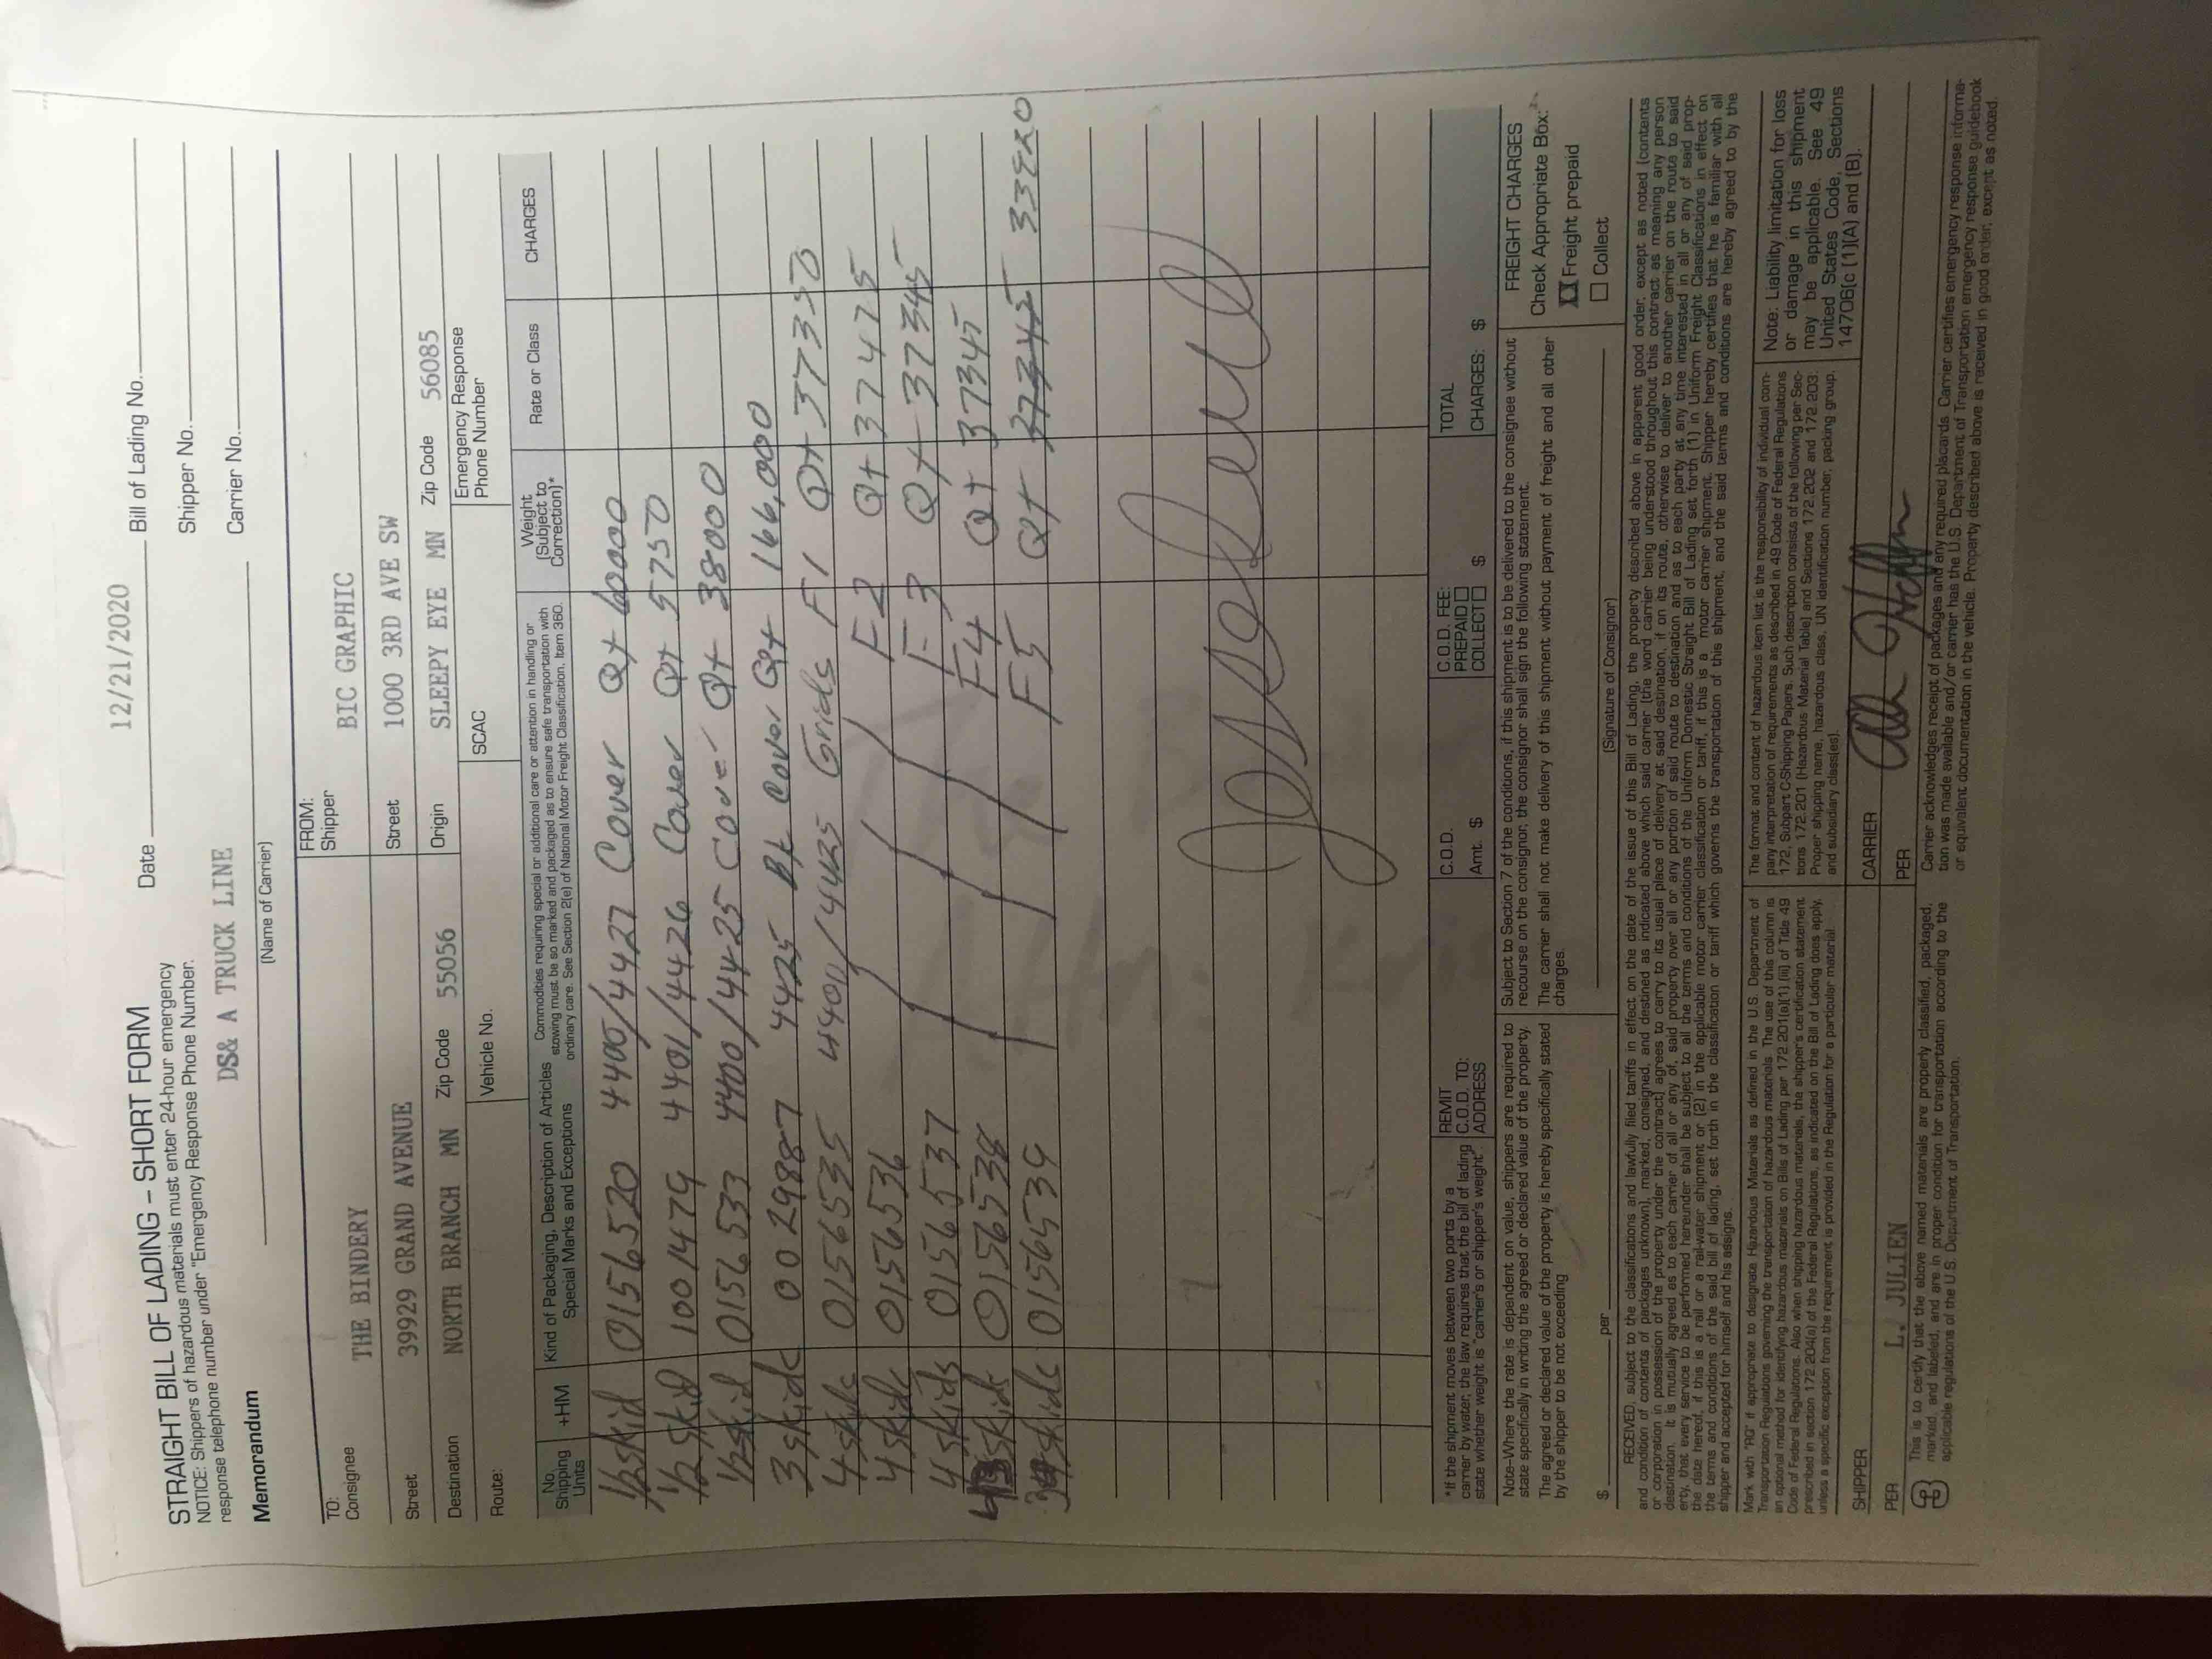 12/21/2020
STRAIGHT BILL OF LADING – SHORT FORM Date Bill of Lading No.
NOTICE: Shippers of hazardous materials must enter 24-hour emergency
response telephone number under "Emergency Response Phone Number.
Shipper No.
DS& A TRUCK LINE
Carrier No.
Memorandum
(Name of Carrier)
TO:
Consignee THE BINDERY
FROM:
Shipper BIC GRAPHIC
Street 39929 GRAND AVENUE
Street 1000 3RD AVE SW
Destination NORTH BRANCH MN Zip Code 55056
Origin SLEEPY EYE MN Zip Code 56085
Route:
Vehicle No.
SCAC
Emergency Response
Phone Number
No.
Shipping
Units
+HM
Kind of Packaging, Description of Articles
Special Marks and Exceptions
Commodities requiring special or additional care or attention in handling or
stowing must be so marked and packaged as to ensure safe transportation with
ordinary care. See Section 2(e) of National Motor Freight Classification, Item 360.
Weight
(Subject to
Correction)*
Rate or Class
CHARGES
1/2 skid 0156520 4400/4427 Cover Qt 60000
1/2 skid 1001479 4401/4426 Cover Qt 5750
1/2 skid 0156533 4400/4425 Cover Qt 38000
3 skids 0029887 4425 Bk Cover Qt 166,000
4 skids 0156535 4400/4425 Grids F1 Qt 37350
4 skids 0156536 F2 Qt 37475
4 skids 0156537 F3 Qt 37345
skids 0156538 F4 Qt 37345
skids 0156539 F5 Qt 37345
*If the shipment moves between two ports by a
carrier by water, the law requires that the bill of lading
state whether weight is "carrier's or shipper's weight."
REMIT
C.O.D. TO:
ADDRESS
C.O.D.
Amt. $
C.O.D. FEE:
PREPAID
COLLECT $
TOTAL
CHARGES: $
Note–Where the rate is dependent on value, shippers are required to
state specifically in writing the agreed or declared value of the property.
The agreed or declared value of the property is hereby specifically stated
by the shipper to be not exceeding
$ per
Subject to Section 7 of the conditions, if this shipment is to be delivered to the consignee without
recourse on the consignor, the consignor shall sign the following statement.
The carrier shall not make delivery of this shipment without payment of freight and all other
charges.
(Signature of Consignor)
FREIGHT CHARGES
Check Appropriate Box:
Freight prepaid
Collect
RECEIVED, subject to the classifications and lawfully filed tariffs in effect on the date of the issue of this Bill of Lading, the property described above in apparent good order, except as noted (contents
and condition of contents of packages unknown), marked, consigned, and destined as indicated above which said carrier (the word carrier being understood throughout this contract as meaning any person
or corporation in possession of the property under the contract) agrees to carry to its usual place of delivery at said destination, if on its route, otherwise to deliver to another carrier on the route to said
destination. It is mutually agreed as to each carrier of all or any of, said property over all or any portion of said route to destination and as to each party at any time interested in all or any of said prop-
erty, that every service to be performed hereunder shall be subject to all the terms and conditions of the Uniform Domestic Straight Bill of Lading set forth (1) in Uniform Freight Classifications in effect on
the date hereof, if this is a rail or a rail-water shipment or (2) in the applicable motor carrier classification or tariff, if this is a motor carrier shipment. Shipper hereby certifies that he is familiar with all
the terms and conditions of the said bill of lading, set forth in the classification or tariff which governs the transportation of this shipment, and the said terms and conditions are hereby agreed to by the
shipper and accepted for himself and his assigns.
Mark with "RQ" if appropriate to designate Hazardous Materials as defined in the U.S. Department of
Transportation Regulations governing the transportation of hazardous materials. The use of this column is
an optional method for identifying hazardous materials on Bills of Lading per 172.201(a)(1)(iii) of Title 49
Code of Federal Regulations. Also when shipping hazardous materials, the shipper's certification statement
prescribed in section 172.204(a) of the Federal Regulations, as indicated on the Bill of Lading does apply,
unless a specific exception from the requirement is provided in the Regulation for a particular material.
The format and content of hazardous item list is the responsibility of individual com-
pany interpretation of requirements as described in 49 Code of Federal Regulations
172, Subpart C-Shipping Papers. Such description consists of the following per Sec-
tions 172.201 (Hazardous Material Table) and Sections 172.202 and 172.203:
Proper shipping name, hazardous class, UN identification number, packing group,
and subsidiary class(es).
Note: Liability limitation for loss
or damage in this shipment
may be applicable. See 49
United States Code, Sections
14706(c)(1)(A) and (B).
SHIPPER
CARRIER
PER L. JULIEN
PER
This is to certify that the above named materials are properly classified, packaged,
marked, and labeled, and are in proper condition for transportation according to the
applicable regulations of the U.S. Department of Transportation.
Carrier acknowledges receipt of packages and any required placards. Carrier certifies emergency response informa-
tion was made available and/or carrier has the U.S. Department of Transportation emergency response guidebook
or equivalent documentation in the vehicle. Property described above is received in good order, except as noted.